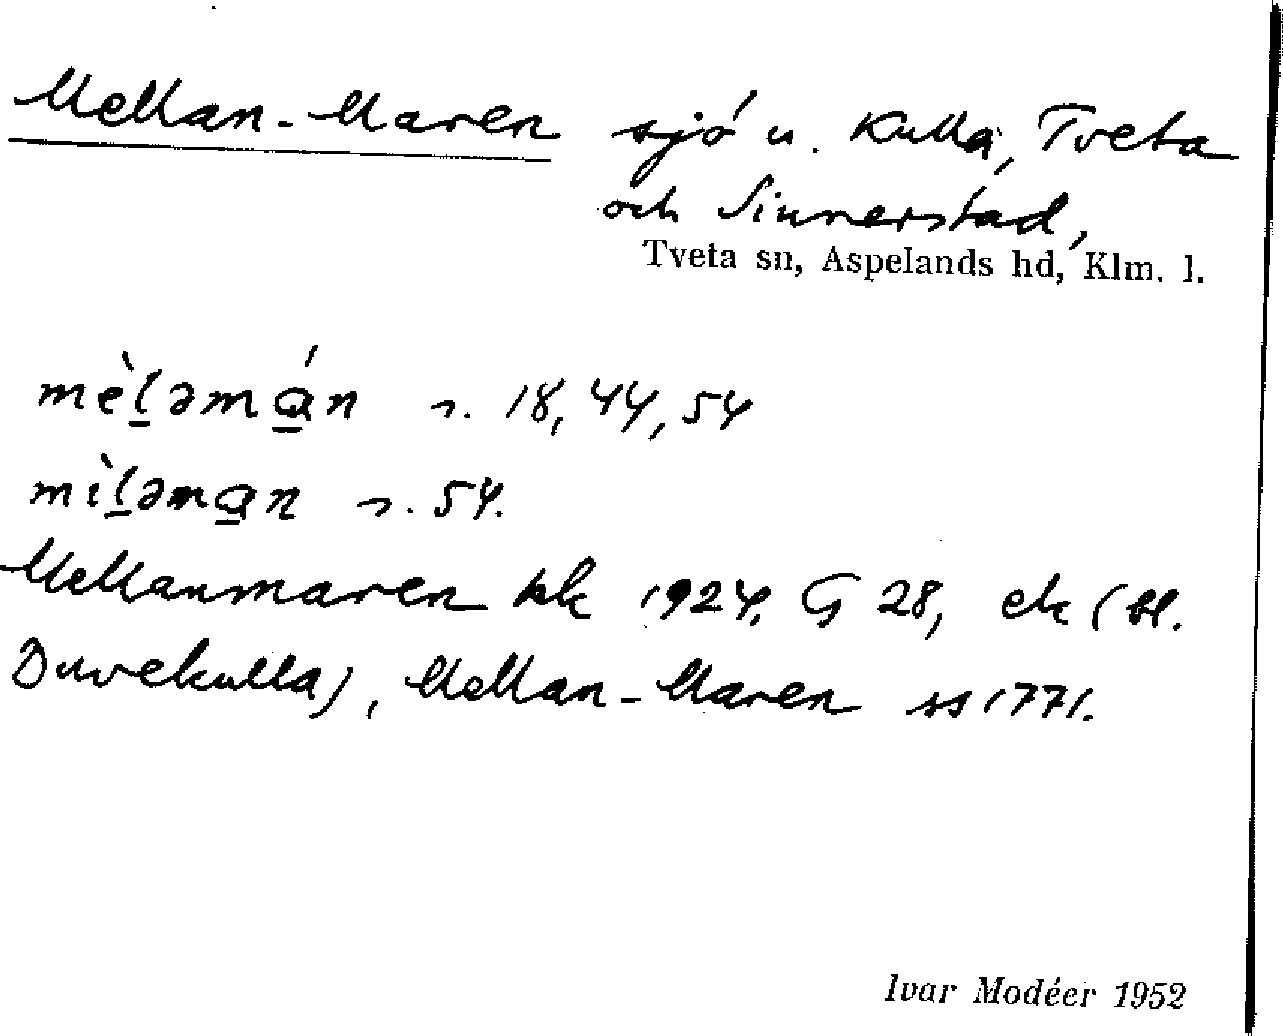 Mellan-Maren sjö u. Kulla, Tveta
och Sinnerstad,
Tveta sn, Aspelands hd, Klm. l.
mè̱ləmá̱n s. 18, 44, 54
mì̱ləma̱n s. 54.
Mellanmaren kk 1924, G 28, ek (bl.
Duvekulla), Mellan-Maren ss 1771.
Ivar Modéer 1952